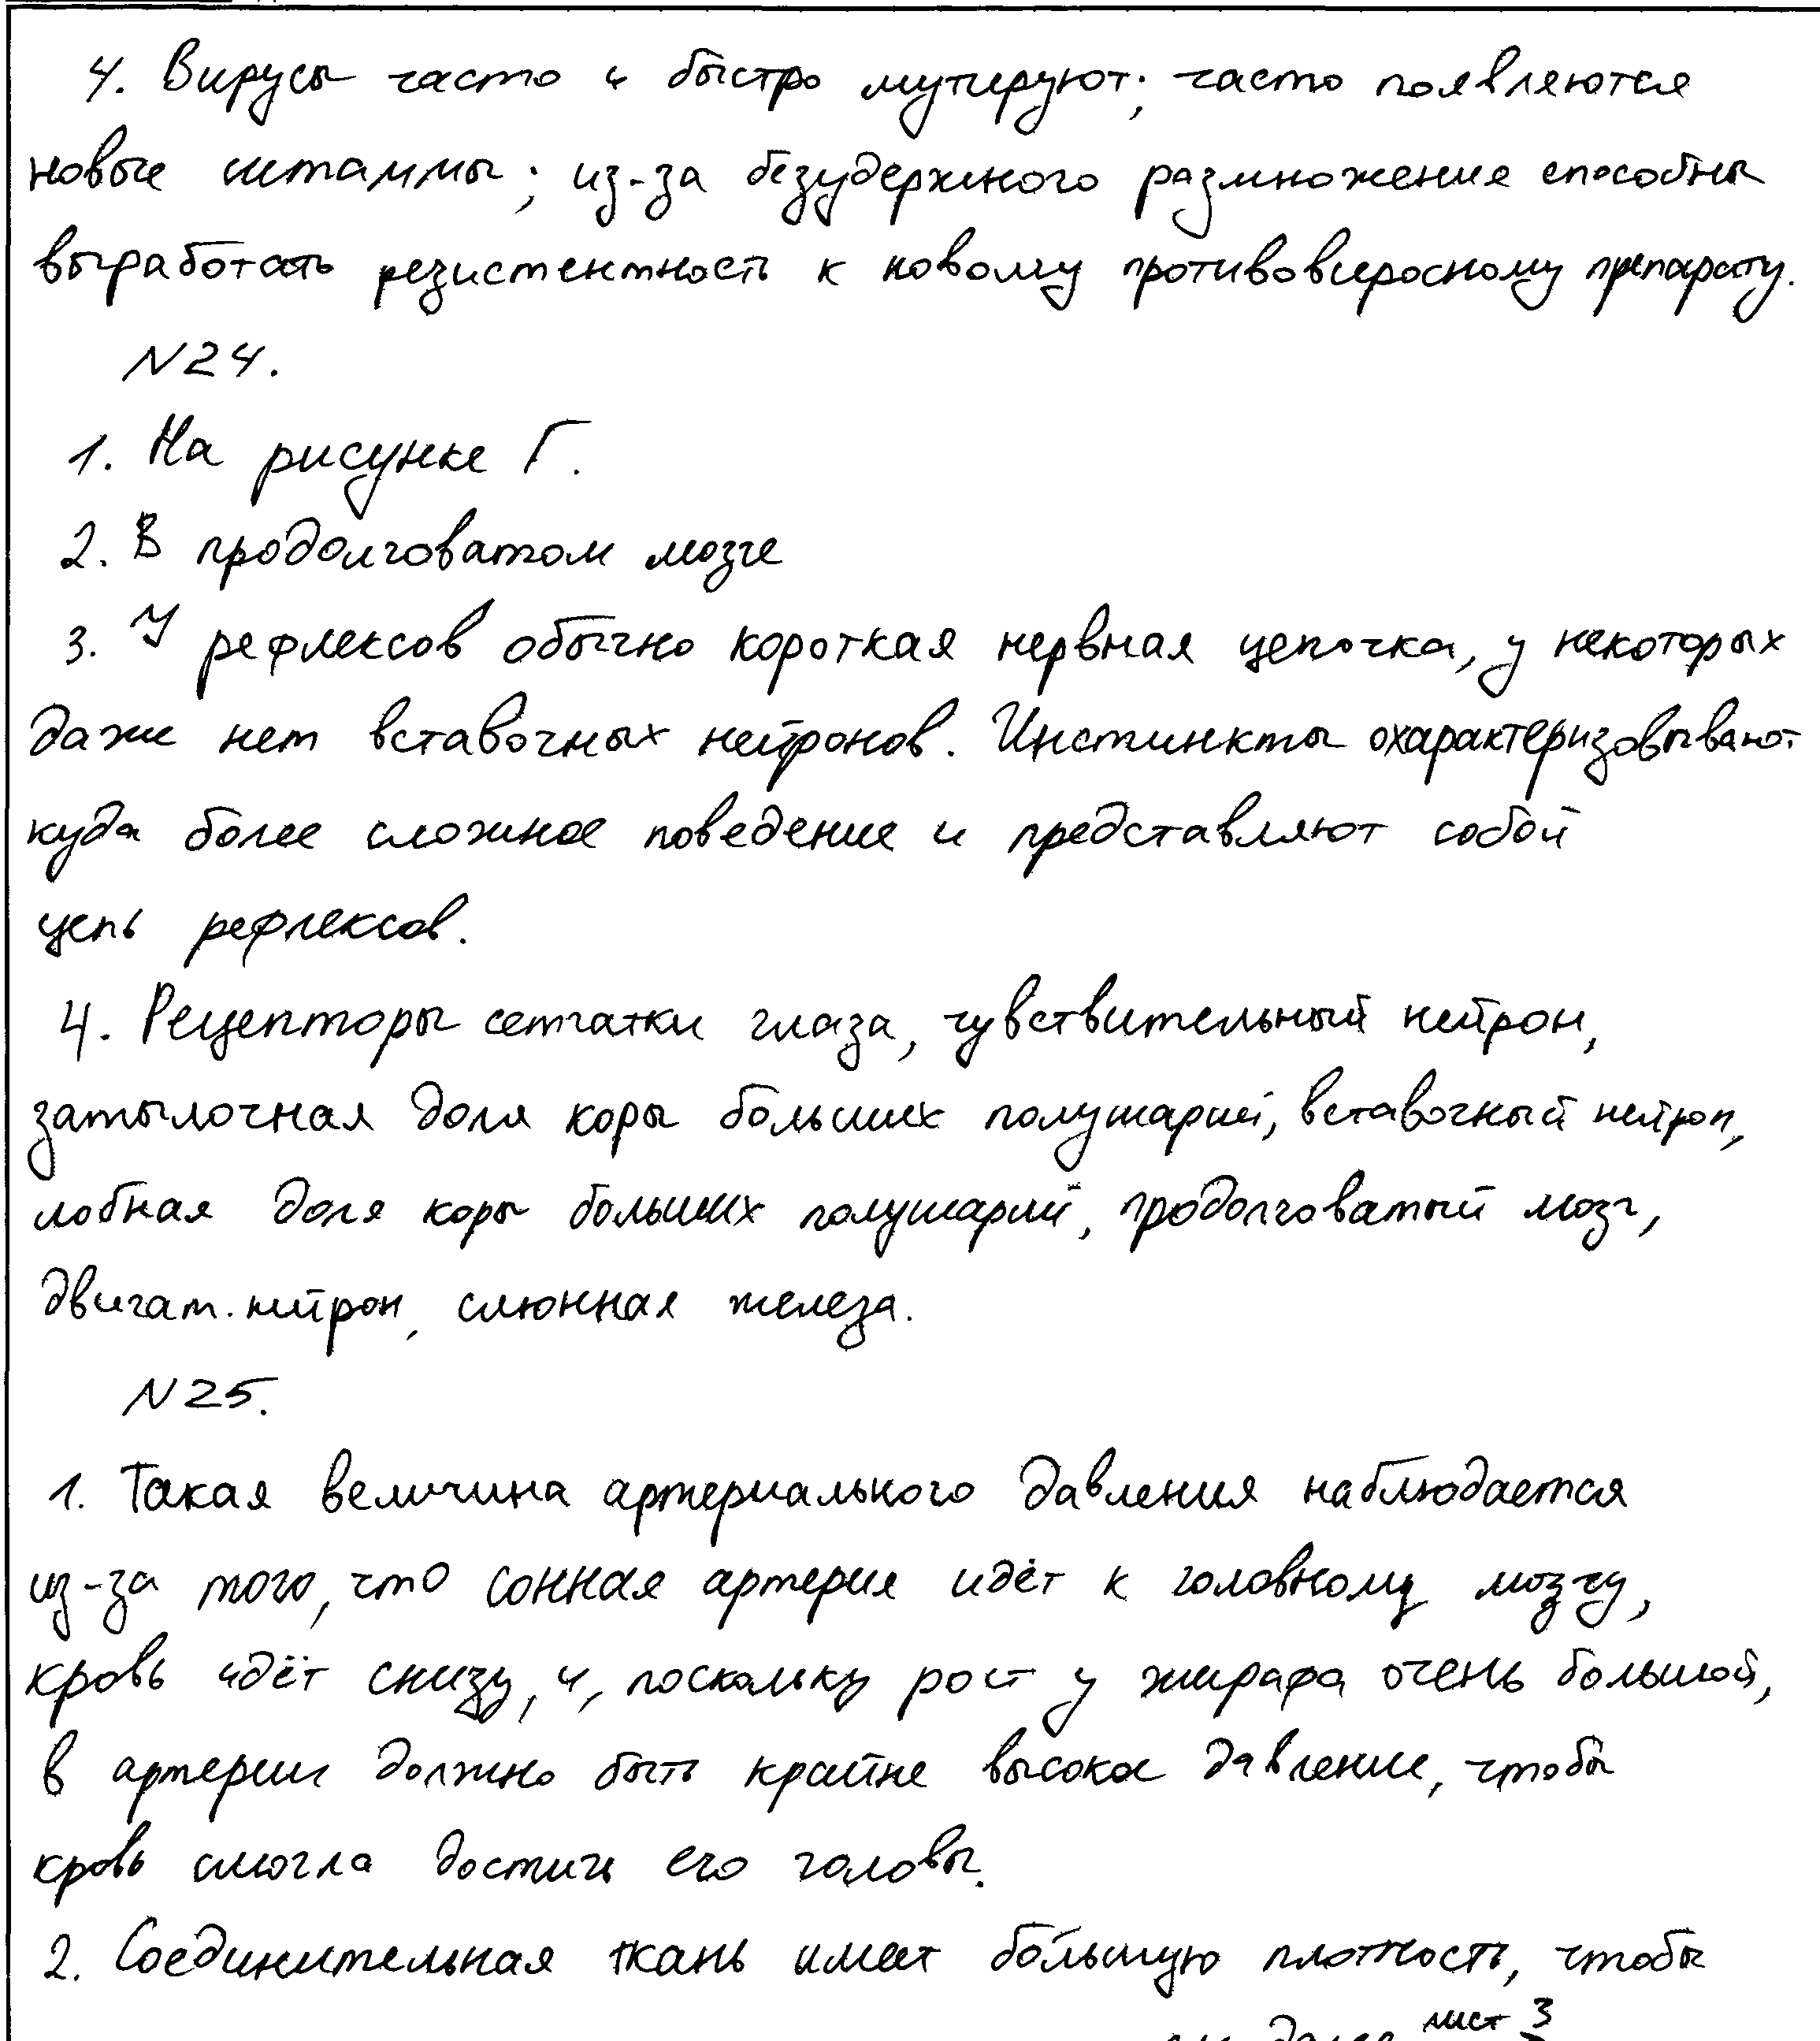 4. Вирусы часто и быстро мутируют; часто появляются
новые штаммы; из-за безудержного размножения способны
выработать резистентность к новому противовирусному препарату.
N24.
1. На рисунке Г.
2. В продолговатом мозге
3. У рефлексов обычно короткая нервная цепочка, у некоторых
даже нет вставочных нейронов. Инстинкты охарактеризовывают
куда более сложное поведение и представляют собой
цепь рефлексов.
4. Рецепторы сетчатки глаза, чувствительный нейрон,
затылочная доля коры больших полушарий, вставочный нейрон,
лобная доля коры больших полушарий, продолговатый мозг,
двигат. нейрон, слюнная железа.
N25.
1. Такая величина артериального давления наблюдается
из-за того, что сонная артерия идёт к головному мозгу,
кровь идёт снизу, и, поскольку рост у жирафа очень большой,
в артерии должно быть крайне высокое давление, чтобы
кровь смогла достичь его головы.
2. Соединительная ткань имеет бо́льшую плотность, чтобы
см. далее лист 3